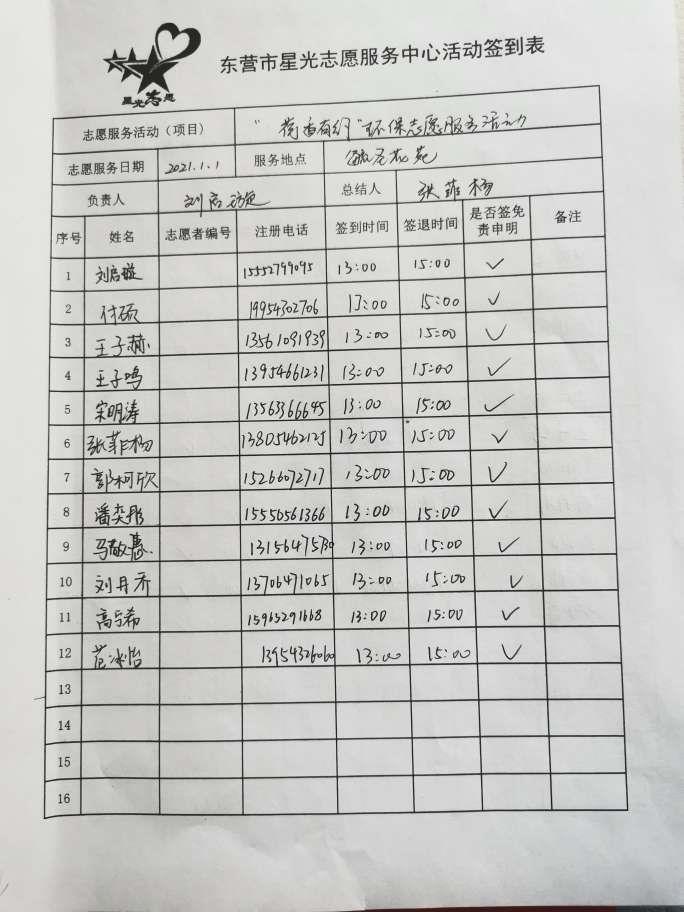 星光志愿
东营市星光志愿服务中心活动签到表
志愿服务活动（项目） "荷香有约"环保志愿服务活动
志愿服务日期 2021.1.1 服务地点 花苑
负责人 刘启 总结人 张菲杨
序号 姓名 志愿者编号 注册电话 签到时间 签退时间 是否签免责申明 备注
1 刘启璇 15552799095 13:00 15:00 ✓
2 付硕 19954302706 13:00 15:00 ✓
3 王子赫 13561091939 13:00 15:00 ✓
4 王子鸣 13954661231 13:00 15:00 ✓
5 宋明涛 13563366645 13:00 15:00 ✓
6 张菲杨 13805462125 13:00 15:00 ✓
7 郭柯欣 15266072717 13:00 15:00 ✓
8 潘奕彤 15550561366 13:00 15:00 ✓
9 马敬惠 13156475730 13:00 15:00 ✓
10 刘丹乔 13706471065 13:00 15:00 ✓
11 高于希 15965291668 13:00 15:00 ✓
12 范冰怡 13954326060 13:00 15:00 ✓
13
14
15
16